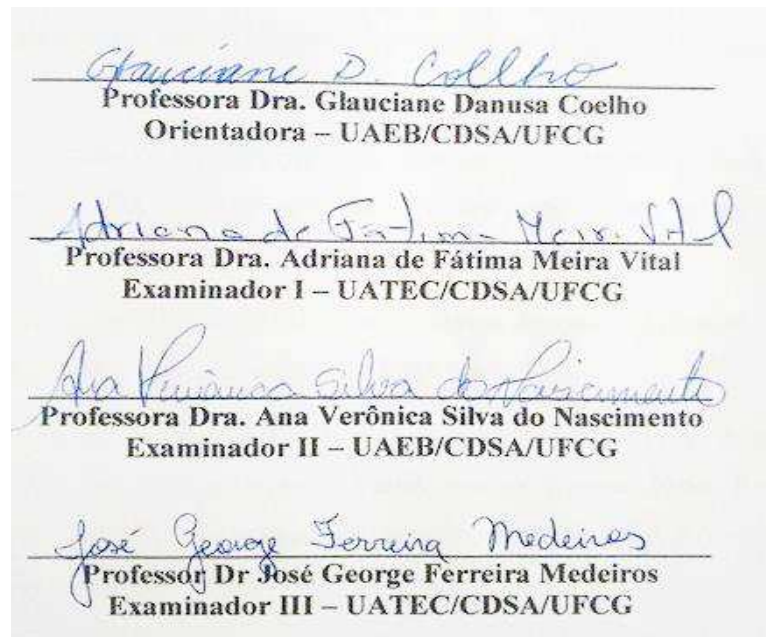 Glauciane D. Coelho
Professora Dra. Glauciane Danusa Coelho
Orientadora – UAEB/CDSA/UFCG
Adriana de Fátima Meira Vital
Professora Dra. Adriana de Fátima Meira Vital
Examinador I – UATEC/CDSA/UFCG
Ana Verônica Silva do Nascimento
Professora Dra. Ana Verônica Silva do Nascimento
Examinador II – UAEB/CDSA/UFCG
José George Ferreira Medeiros
Professor Dr José George Ferreira Medeiros
Examinador III – UATEC/CDSA/UFCG